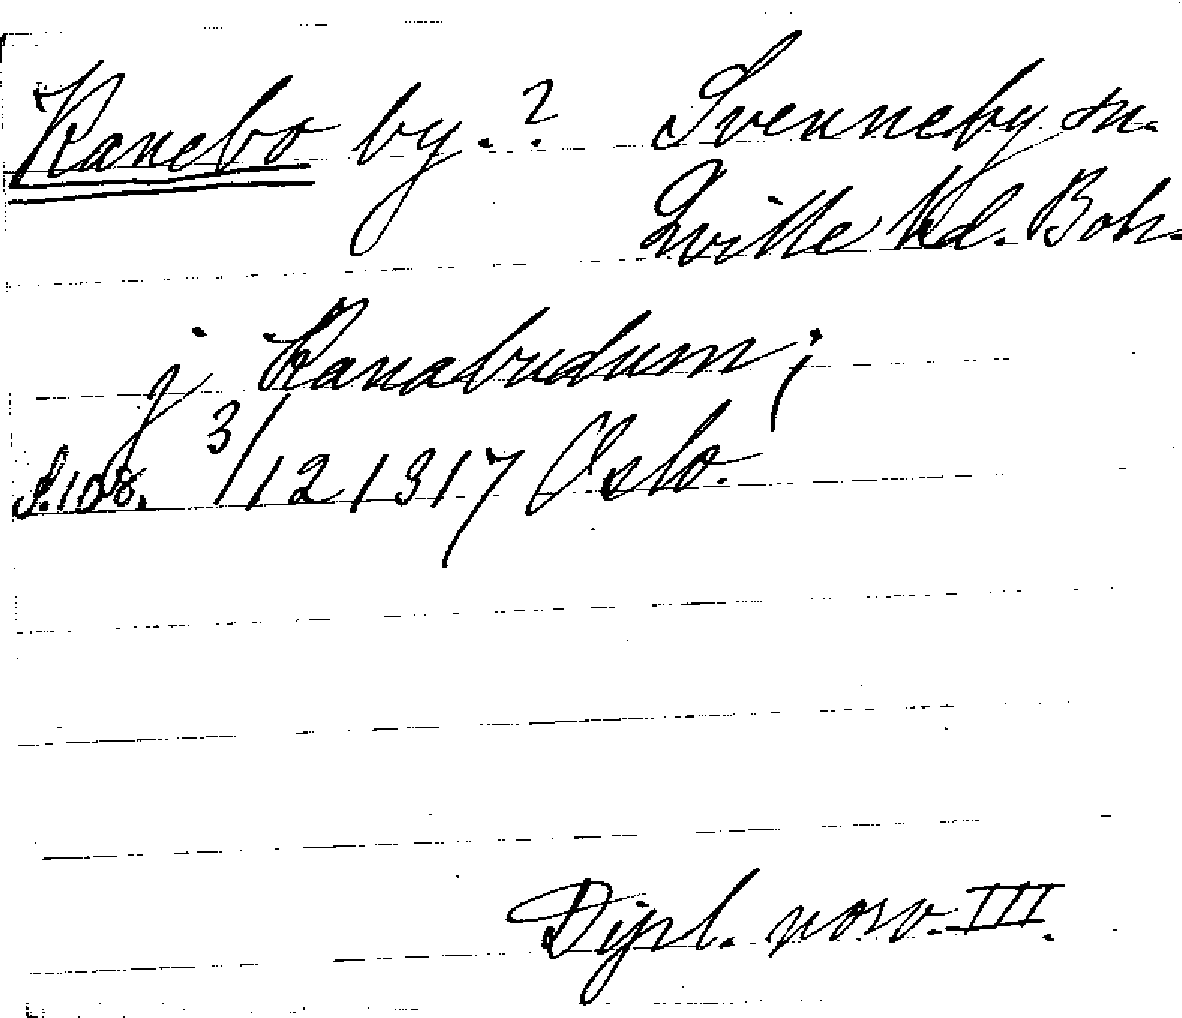 Ranebo by.? Svenneby sn.
Qville Hd. Boh.
j Ranabudum;
S.108. 3/12 1317 Oslo.
Dipl. norv. III.